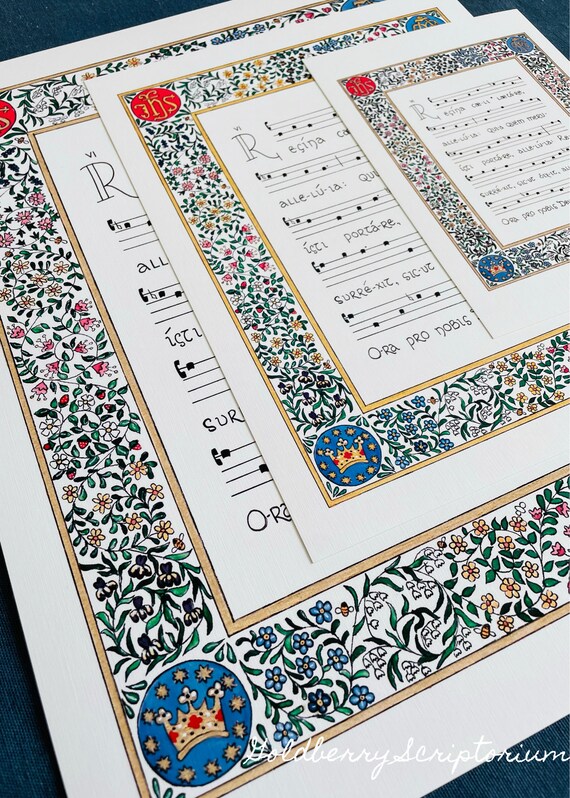 IHS
VI
R
all
ísti
sur
O-ra
IHS
VI
Regína cœ
alle-lú-ia: Qui
ísti portáre,
surre-xit, sicut
O-ra pro nobis
IHS
Regína cœli lætáre,
allelú-ia: quia quem meru-
ísti portáre, alle-lú-ia: Re
surréxit, sicut
Ora pro nobis De
GoldberryScriptorium